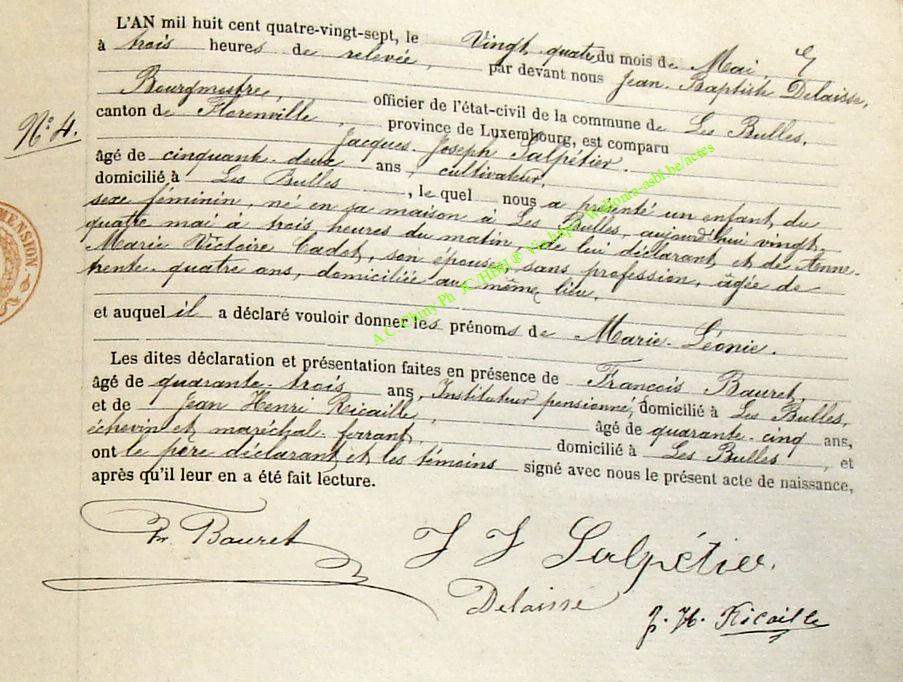 L'AN mil huit cent quatre-vingt-sept, le Vingt quatre du mois de Mai,
à trois heures de relevée, par devant nous Jean-Baptiste Delaisse,
Bourgmestre, officier de l'état-civil de la commune de Les Bulles,
N° 4.
canton de Florenville, province de Luxembourg, est comparu
Jacques Joseph Salpétier.
âgé de cinquante-deux ans, cultivateur,
domicilié à Les Bulles, le quel nous a présenté un enfant, du
sexe féminin, né en sa maison à Les Bulles, aujourd'hui vingt-
quatre mai à trois heures du matin, de lui déclarant et de Anne-
Marie Victoire Cadot, son épouse, sans profession, âgée de
trente-quatre ans, domiciliée au même lieu.
et auquel il a déclaré vouloir donner les prénoms de Marie-Léonie.
Les dites déclaration et présentation faites en présence de François Bauret,
âgé de quarante-trois ans, Instituteur pensionné, domicilié à Les Bulles,
et de Jean Henri Ricaille, âgé de quarante-cinq ans,
échevin et maréchal-ferrant, domicilié à Les Bulles, et
ont le père déclarant et les témoins signé avec nous le présent acte de naissance,
après qu'il leur en a été fait lecture.
Fr. Bauret
J J Salpétier.
Delaisse
J. H. Ricaille
MENSION